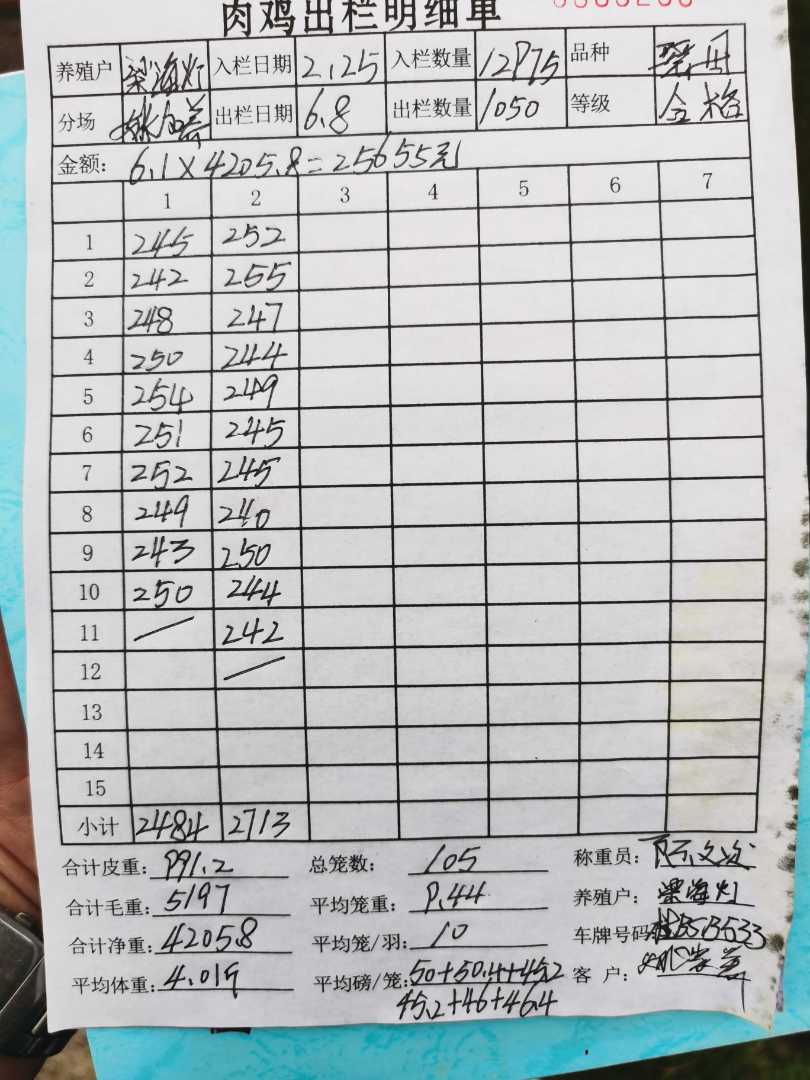 肉鸡出栏明细单
养殖户 梁海灯 入栏日期 2.25 入栏数量 12975 品种
分场 出栏日期 6.8 出栏数量 1050 等级 合格
金额: 6.1×4205.8=25655元
1 2 3 4 5 6 7
1 245 252
2 242 255
3 248 247
4 250 244
5 254 249
6 251 245
7 252 245
8 249 240
9 243 250
10 250 244
11 / 242
12 /
13
14
15
小计 2484 2713
合计皮重: 991.2 总笼数: 105 称重员:
合计毛重: 5197 平均笼重: 9.44 养殖户: 梁海灯
合计净重: 4205.8 平均笼/羽: 10 车牌号码
平均体重: 4.01 平均磅/笼: 50+50.4+45.2 客 户:
45.2+46+46.4